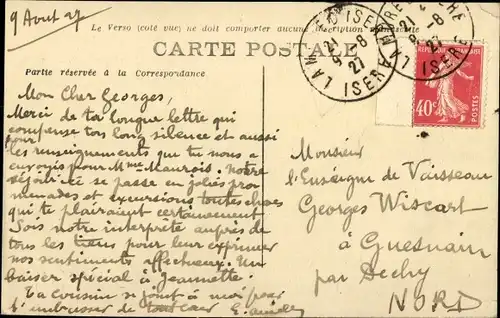 9 Aout 27
Le Verso (coté vue) ne doit comporter aucune inscription manuscrite
CARTE POSTALE
Partie réservée à la Correspondance
LA MURE D'ISERE
21
9-8
27
ISERE
LA MURE
21
9-8
27
ISERE
40c
Mon Cher Georges,
Merci de ta longue lettre qui
compense ton long silence et aussi
pour
les renseignements que tu nous a
envoyés pour Mme Maurois. Notre
séjour ici se passe en jolies pro
menades et excursions toutes choses
qui te plairaient certainement
Sois notre interprète auprès de
tous les tiens pour leur exprimer
nos sentiments affectueux. Un
baiser spécial à Jeannette.
Ta cousine se joint à moi pour
t'embrasser de tout cœur
Monsieur
l'Enseigne de Vaisseau
Georges Wiscart
à Guesnain
par Dechy
NORD